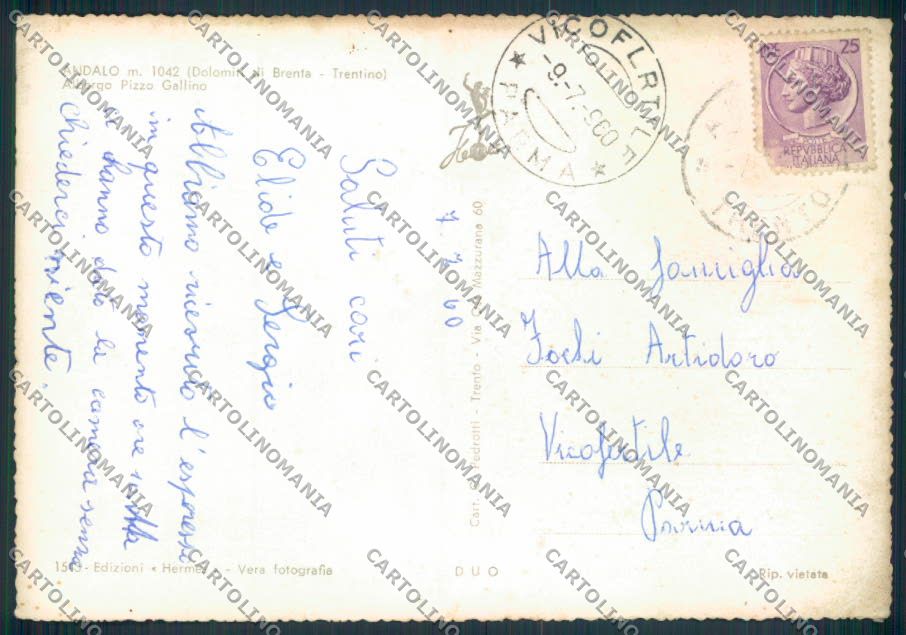 ANDALO m. 1042 (Dolomiti di Brenta - Trentino)
Albergo Pizzo Gallino
Saluti cari
Elide e Sergio
Abbiamo ricevuto l'espresso
in questo momento ore
ci hanno dato la camera senza
chiederci niente.
7 7 60
Cart. Pedrotti - Trento - Via Mazzurana 60
VICOFERTILE
PARMA
-9.-7.-960
25
REPVBBLICA
ITALIANA
TRENTO
Alla famiglia
Artidoro
Vicofertile
Parma
Edizioni « Hermes » - Vera fotografia
DUO
Rip. vietata
CARTOLINOMANIA